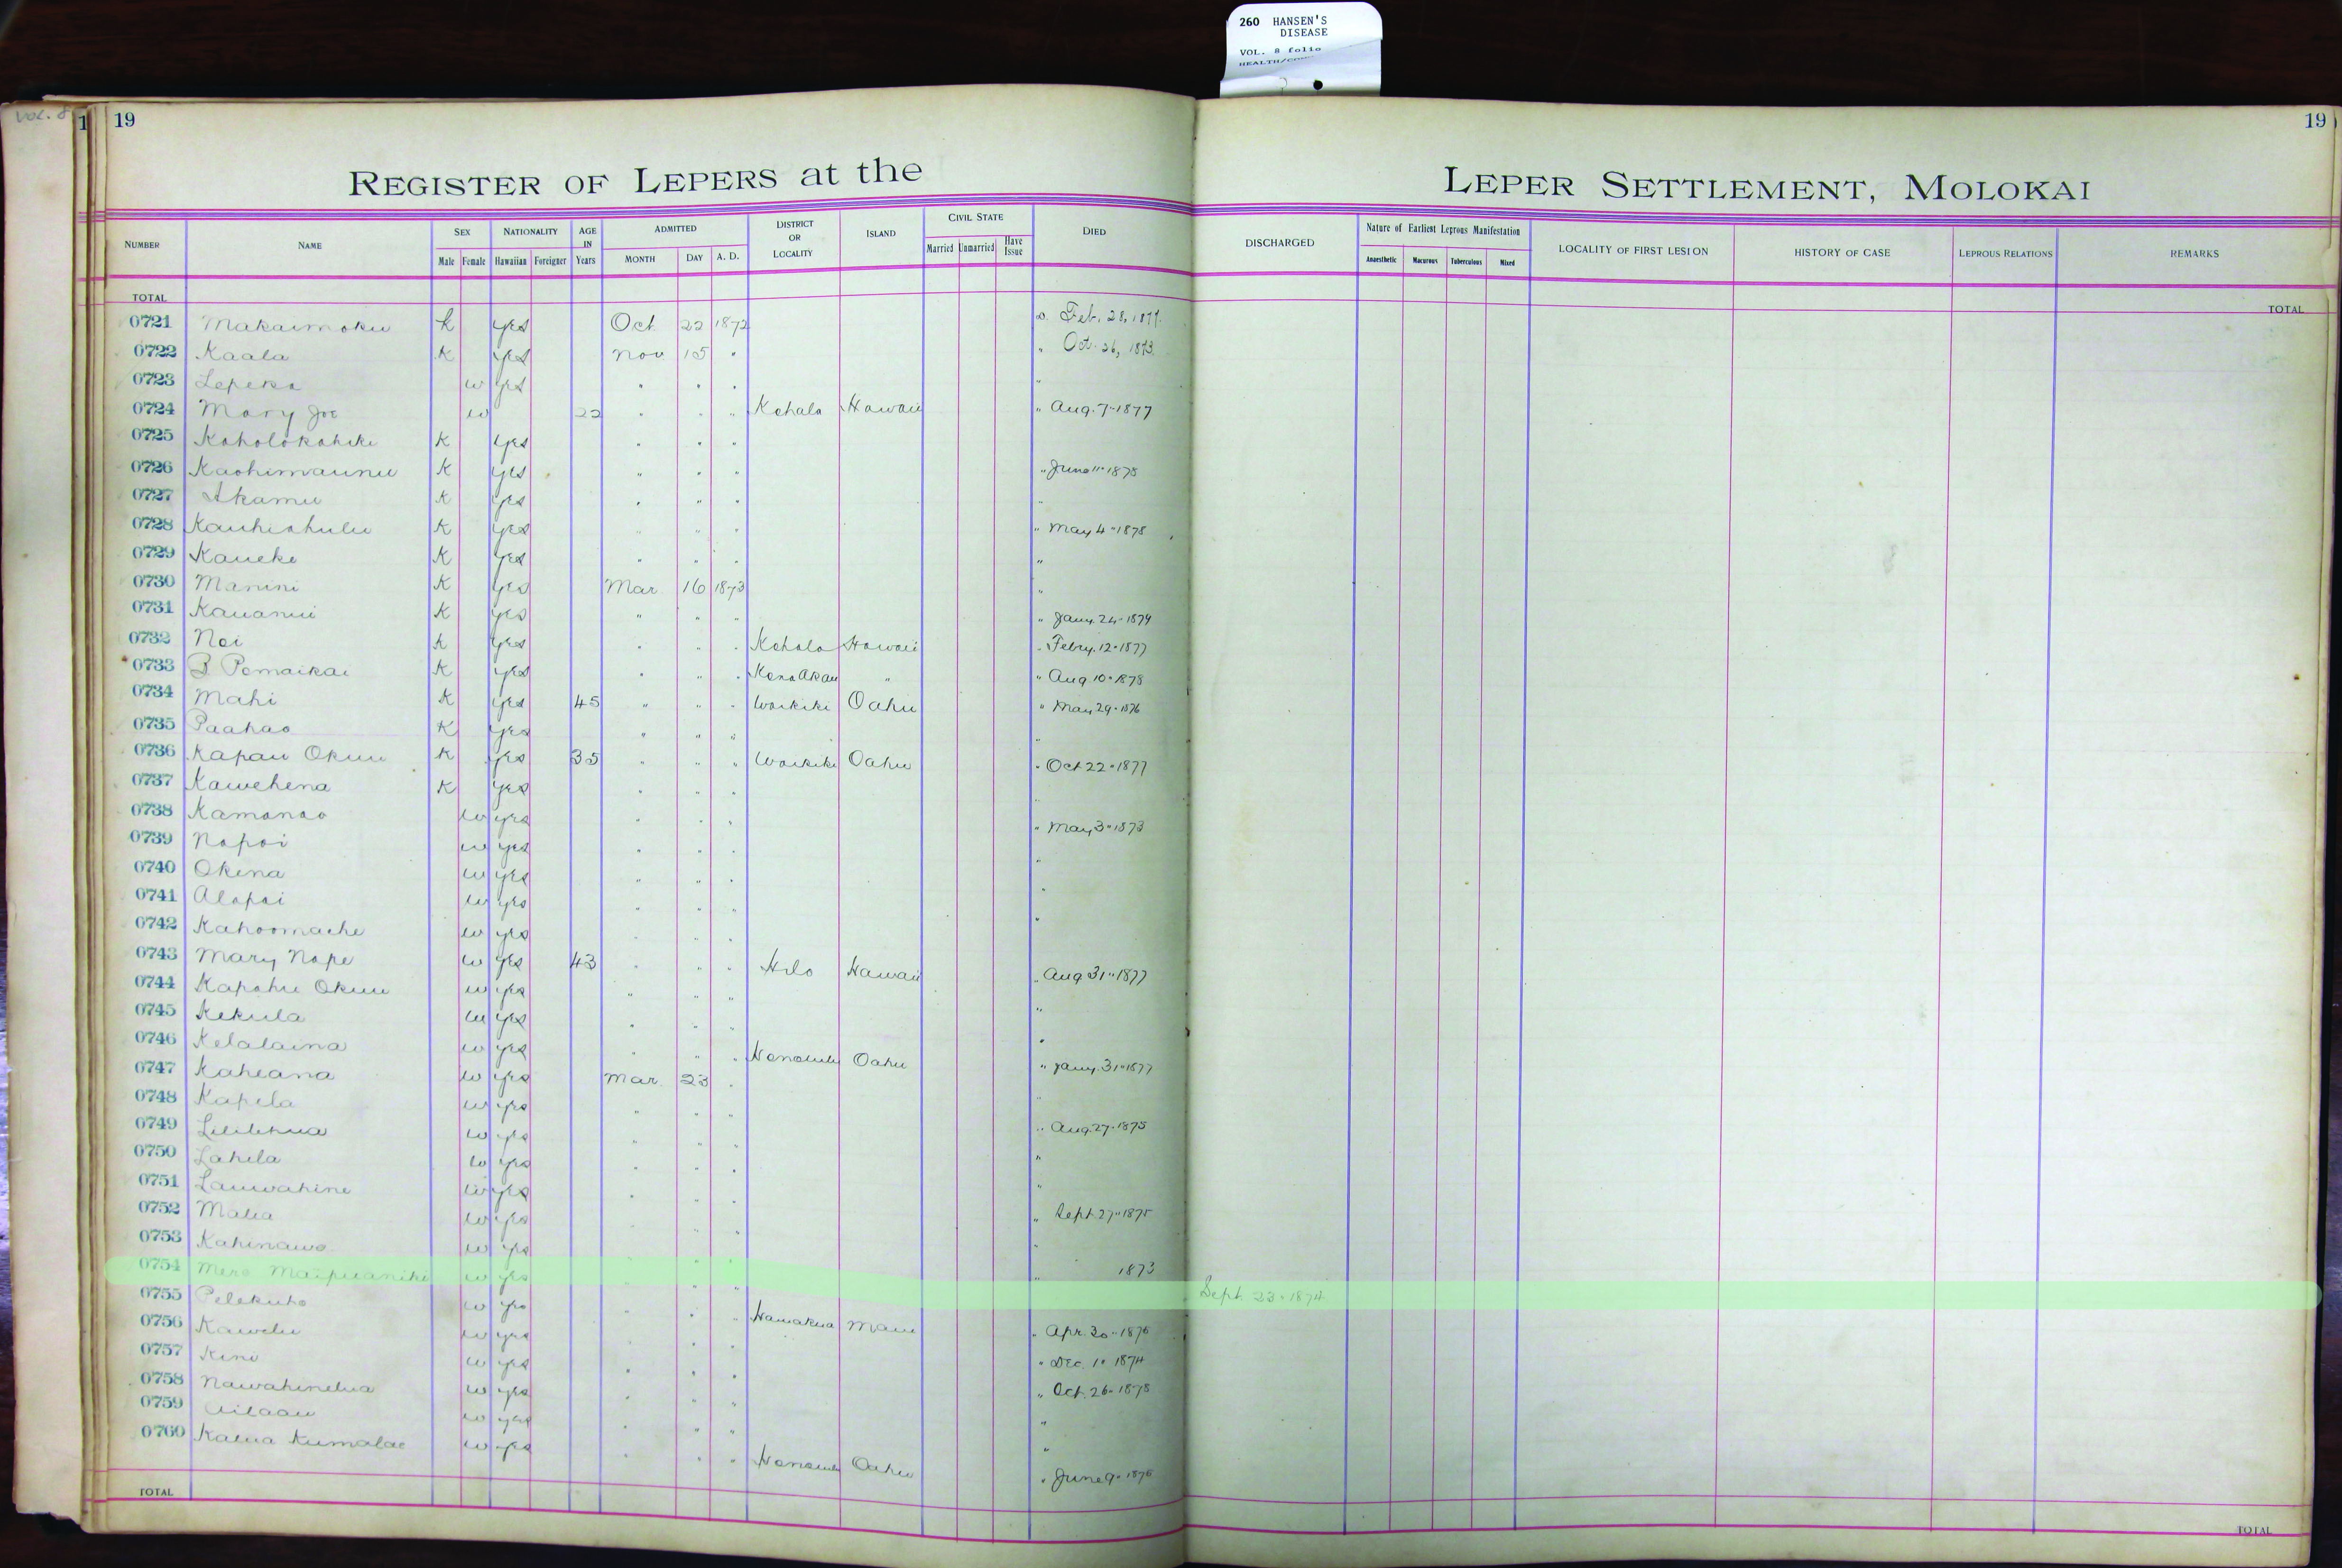 260 HANSEN'S
DISEASE
VOL. 8 folio
Vol. 8
1 19
19
REGISTER OF LEPERS at the LEPER SETTLEMENT, MOLOKAI
NUMBER NAME SEX Male Female NATIONALITY Hawaiian Foreigner AGE IN Years ADMITTED MONTH DAY A. D. DISTRICT OR LOCALITY ISLAND CIVIL STATE Married Unmarried Have Issue DIED DISCHARGED Nature of Earliest Leprous Manifestation Anaesthetic Macurous Tuberculous Mixed LOCALITY OF FIRST LESION HISTORY OF CASE LEPROUS RELATIONS REMARKS
TOTAL TOTAL
0721 Makaimoku k yes Oct 22 1872 Feb. 28, 1877.
0722 Kaala K yes Nov 15 " " Oct. 26, 1873.
0723 Lepeka w yes " " " "
0724 Mary Joe w 22 " " " Kohala Hawaii " Aug. 7-1877
0725 Koholokahiki K yes " " "
0726 Kaohimaunu K yes " " " " June 11-1878
0727 Akamu K yes " " " "
0728 Kauhiahulu K yes " " " " May 4-1878
0729 Kaueke K yes " " " "
0730 Manini K yes Mar 16 1873 "
0731 Kauanui K yes " " " " Jany. 24-1879
0732 Noi k yes " " " Kohala Hawaii " Febry. 12-1877
0733 B Pomaikai K yes " " " Kona Akau " " Aug 10-1878
0734 Mahi K yes 45 " " " Waikiki Oahu " May 29-1876
0735 Paahao K yes " " " "
0736 Kapau Okuu K yes 35 " " " Waikiki Oahu " Oct 22-1877
0737 Kawehena K yes " " " "
0738 Kamanao w yes " " " " May 3-1873
0739 Napoi w yes " " " "
0740 Okina w yes " " " "
0741 Alapai w yes " " " "
0742 Kahoomache w yes " " "
0743 Mary Nape w yes 43 " " " Hilo Hawaii " Aug 31-1877
0744 Kapahu Okuu w yes " " " "
0745 Kekula w yes " " "
0746 Kelalaina w yes " " " Honolulu Oahu " Jany. 31-1877
0747 Kaheana w yes Mar. 23 " "
0748 Kapela w yes " " " " Aug. 27-1875
0749 Lililehua w yes " " " "
0750 Lahela w yes " " " "
0751 Lauwahine w yes " " " Sept. 27-1875
0752 Malia w yes " " "
0753 Kahinawe w yes " " " 1873
0754 Mere Maipuaniki w yes " " " Sept. 23-1874
0755 Pelekuho w yes " " " Hamakua Maui " Apr. 30-1876
0756 Kawelu w yes " " " Dec. 1- 1874
0757 Kini w yes " " " Oct. 26-1878
0758 Nawahinelua w yes " " " "
0759 Ailaau w yes " " " "
0760 Kalua Kumalae w yes " " " Honolulu Oahu " June 9-1876
TOTAL TOTAL